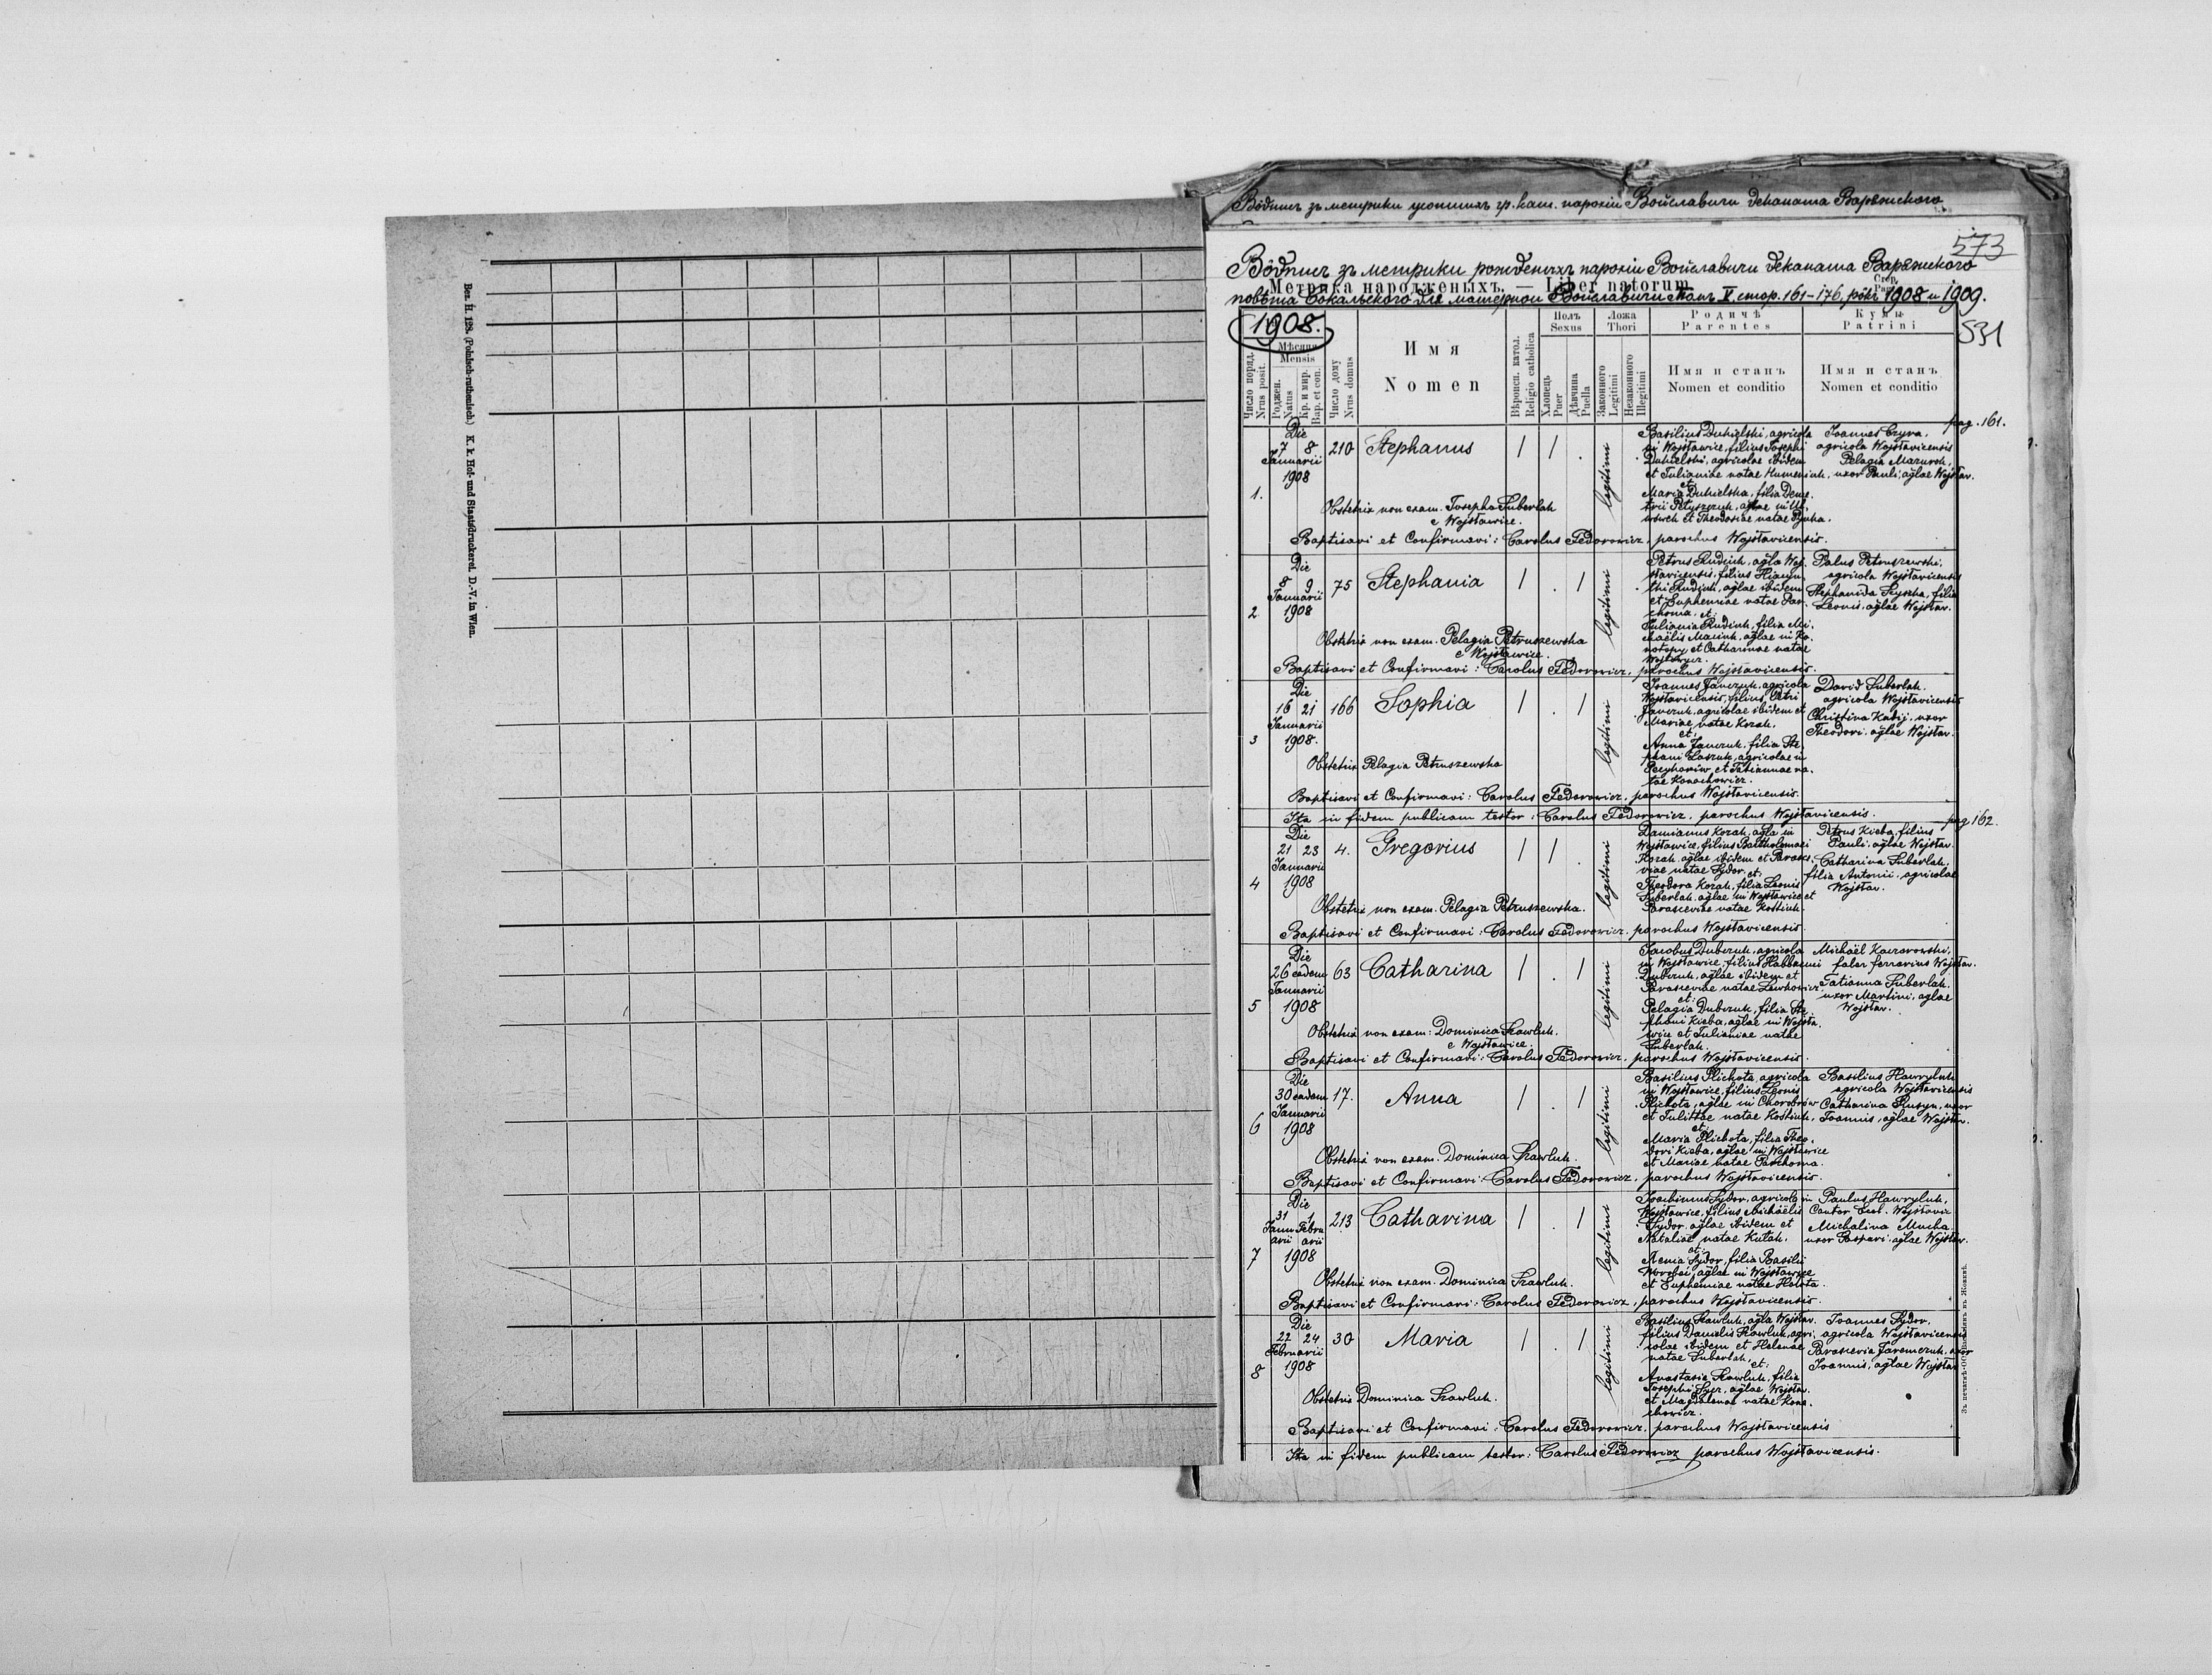 Bez. H. 128. (Polnisch-ruthenisch.) K. k. Hof- und Staatsdruckerei. D.-V. in Wien.
Вôдписъ зъ метрики усопшихъ гр. кат. парохіи Войславичи деканата Варяжского
573
Вôдписъ зъ метрики рожденыхъ парохіи Войславичи деканата Варяжского
Метрика народженыхъ. — Liber natorum.
Стор. Pag.
повѣта Сокальского для матерной Войславичи Томъ V. стор. 161-176, рôкъ 1908 и 1909.
1908.
531
Число поряд. Nrus posit.
Мѣсяця Mensis
Рожден. Natus
Кр. и мир. Bap. et con.
Число дому Nrus domus
Имя Nomen
Вѣроисп. катол. Religio catholica
Полъ Sexus
Хлопець Puer
Дѣвчина Puella
Ложа Thori
Законного Legitimi
Незаконного Illegitimi
Родичѣ Parentes
Имя и станъ Nomen et conditio
Кумы Patrini
Имя и станъ Nomen et conditio
pag. 161.
1. Die 7 8 Januarii 1908 210 Stephanus 1 1 . legitimi
Basilius Duhielski, agricola
in Wojsławice, filius Josephi
Duhielski, agricolae ibidem
et Julianiae natae
et
Maria Duhielska, filia Deme-
trii
et Theodosiae natae
Joannes Czyra,
agricola Wojsławicensis
Pelagia Mazurok,
uxor Pauli, aglae Wojsław.
Obstetrix non exam. Josepha Suberlak
e Wojsławice.
Baptisavi et Confirmavi: Carolus Fedorowicz, parochus Wojsławicensis.
2 Die 8 9 Januarii 1908 75 Stephania 1 . 1 legitimi
Petrus Rudiuk, agla Woj-
sławicensis, filius Hiacyn-
thi Rudiuk, aglae ibidem
et Euphemiae natae Par-
choma. et:
Juliania Rudiuk, filia Mi-
chaëlis Maciuk, aglae in Ko-
notopy et Catharinae natae
Wojtowycz.
Palus Petruszewski,
agricola Wojsławicensis
Stephanida Hyszka, filia
Leonis, aglae Wojsław.
Obstetrix non exam. Pelagia Petruszewska
e Wojsławice.
Baptisavi et Confirmavi: Carolus Fedorowicz, parochus Wojsławicensis.
3 Die 16 21 Januarii 1908. 166 Sophia 1 . 1 legitimi
Joannes Janczuk, agricola
Wojsławicensis, filius Petri
Janczuk, agricolae ibidem et
Mariae natae Kozak.
et:
Anna Janczuk, filia Ste-
phani Laszuk, agricolae in
et Tatiannae na-
tae Konachowicz.
David Suberlak.
agricola Wojsławicensis
Christina Kabij, uxor
Theodori, aglae Wojsław.
Obstetrix Pelagia Petruszewska
Baptisavi et Confirmavi: Carolus Fedorowicz, parochus Wojsławicensis.
Ita in fidem publicam testor: Carolus Fedorowicz, parochus Wojsławicensis.
pag 162.
4 Die 21 23 Januarii 1908 4. Gregorius 1 1 . legitimi
Damianus Kozak, agla in
Wojsławice, filius Bartholomaei
Kozak, aglae ibidem et Parasce-
viae natae Sydor. et:
Theodora Kozak, filia Leonis
Suberlak, aglae in Wojsławice et
Parasceviae natae Kostiuk.
Petrus Kieba, filius
Pauli, aglae Wojsław.
Catharina Suberlak,
filia Antonii, agricolae
Wojsław.
Obstetrix non exam. Pelagia Petruszewska.
Baptisavi et Confirmavi: Carolus Fedorowicz, parochus Wojsławicensis.
5 Die 26 eadem Januarii 1908 63 Catharina 1 . 1 legitimi
Jacobus Dubczuk, agricola
in Wojsławice, filius
Dubczuk, aglae ibidem et
Parasceviae natae Lewkowicz
et:
Pelagia Dubczuk, filia Ste-
phani Kieba, aglae in Wojsła-
wice et Julianiae natae
Suberlak.
Michaël Kaczorowski,
faber ferrarius Wojsław.
Tatianna Suberlak.
uxor Martini, aglae
Wojsław.
Obstetrix non exam: Dominica Szawluk.
e Wojsławice.
Baptisavi et Confirmavi: Carolus Fedorowicz, parochus Wojsławicensis.
6 Die 30 eadem Januarii 1908 17. Anna 1 . 1 legitimi
Basilius Plichota, agricola
in Wojsławice, filius Leonis
Plichota, aglae in Chorobrów
et Julittae natae Kostiuk.
et:
Maria Plichota, filia Theo-
dori Kieba, aglae in Wojsławice
et Mariae natae Parchoma.
Basilius Hawryluk
agricola Wojsławicensis
Catharina Rusyn, uxor
Joannis, aglae Wojsław.
Obstetrix non exam. Dominica Szawluk.
Baptisavi et Confirmavi: Carolus Fedorowicz, parochus Wojsławicensis.
7 Die 31 1 Januarii Februarii 1908 213 Catharina 1 . 1 legitimi
Joachimus Sydor, agricola in
Wojsławice, filius Michaëlis
Sydor, aglae ibidem et
Nataliae natae Kutak.
et:
Xenia Sydor, filia Basilii
Worobei, aglae in Wojsławice
et Euphemiae natae Holota.
Paulus Hawryluk,
Cantor Eccl. Wojsławic
Michalina Mucha.
uxor Caspari, aglae Wojsław.
Obstetrix non exam. Dominica Szawluk.
Baptisavi et Confirmavi: Carolus Fedorowicz, parochus Wojsławicensis.
8 Die 22 24 Februarii 1908 30 Maria 1 . 1 legitimi
Basilius Szawluk, agla Wojsław.
filius Danielis Szawluk, agri-
colae ibidem et Helenae
natae Suberlak,
et:
Anastasia Szawluk, filia
Josephi aglae Wojsław.
et Magdalenae natae Kona-
chowicz.
Joannes Sydor,
agricola Wojsławicensis
Parascevia Jaremczuk, uxor
Joannis, aglae Wojsław
Obstetrix Dominica Szawluk.
Baptisavi et Confirmavi: Carolus Fedorowicz, parochus Wojsławicensis
Ita in fidem publicam testor: Carolus Fedorowicz parochus Wojsławicensis.
Зъ печатнѣ ОО. Василіянъ въ Жовквѣ.